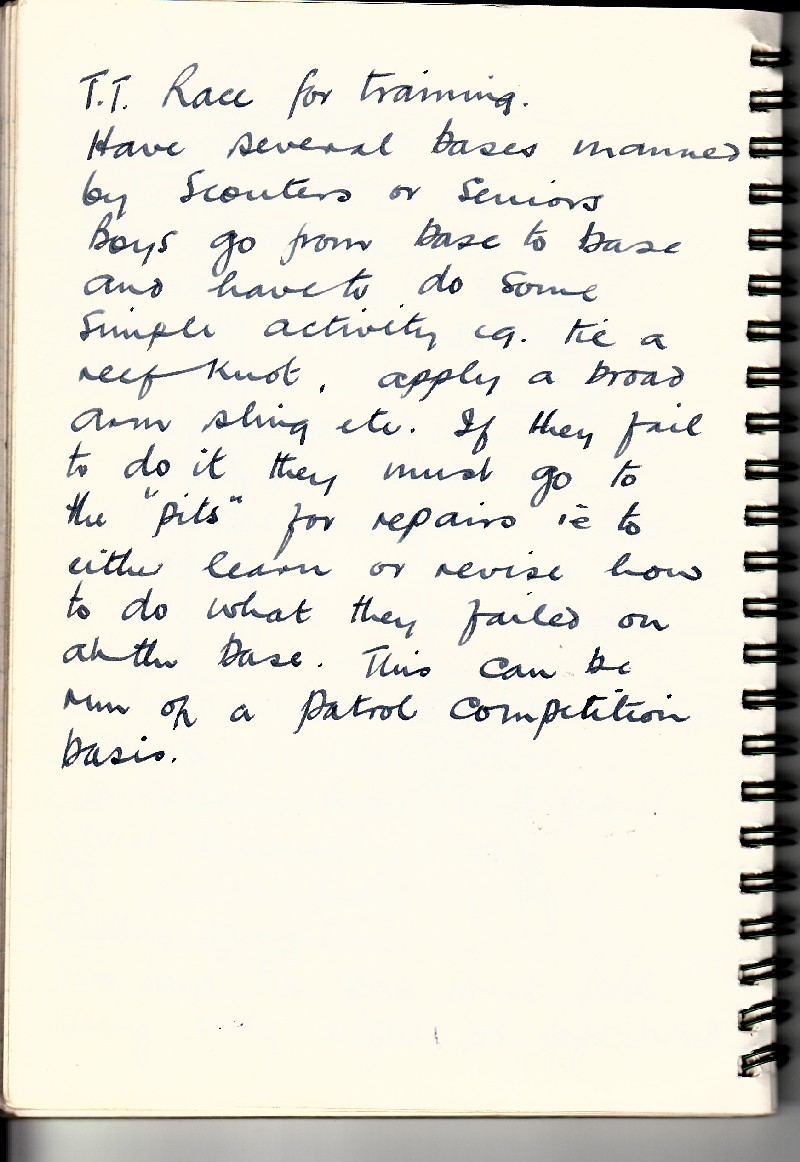 T.T. Race for training.
Have several bases manned
by Scouters or Seniors
Boys go from base to base
and have to do some
simple activity eg. tie a
reef knot, apply a broad
arm sling etc. If they fail
to do it they must go to
the "pits" for repairs ie to
either learn or revise how
to do what they failed on
at the base. This can be
run on a patrol competition
basis.